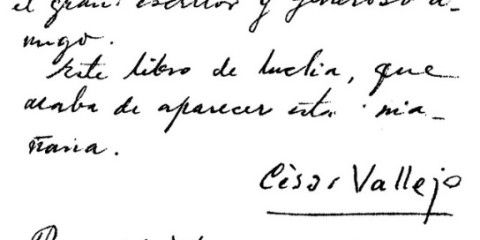 el gran escritor y generoso a-
migo.
Este libro de lucha, que
acaba de aparecer esta ma-
ñana.
César Vallejo